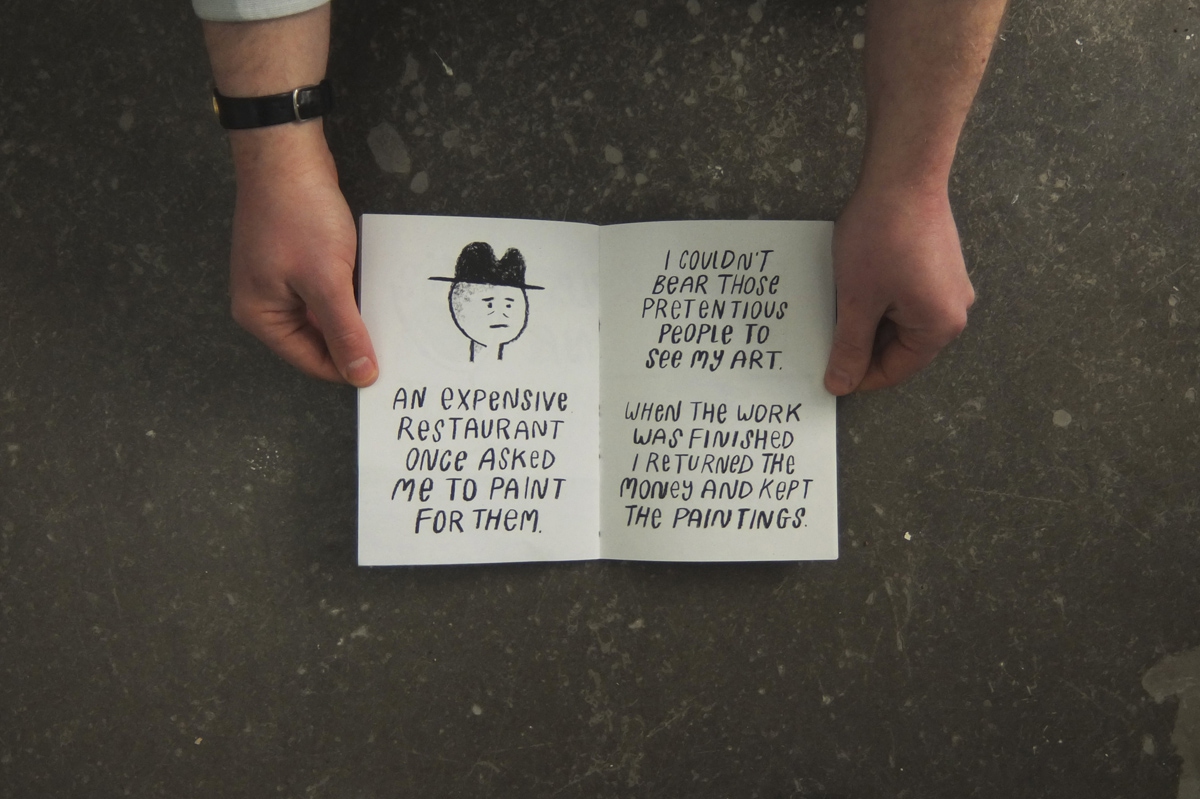 AN EXPENSIVE
RESTAURANT
ONCE ASKED
ME TO PAINT
FOR THEM.
I COULDN'T
BEAR THOSE
PRETENTIOUS
PEOPLE TO
SEE MY ART.
WHEN THE WORK
WAS FINISHED
I RETURNED THE
MONEY AND KEPT
THE PAINTINGS.